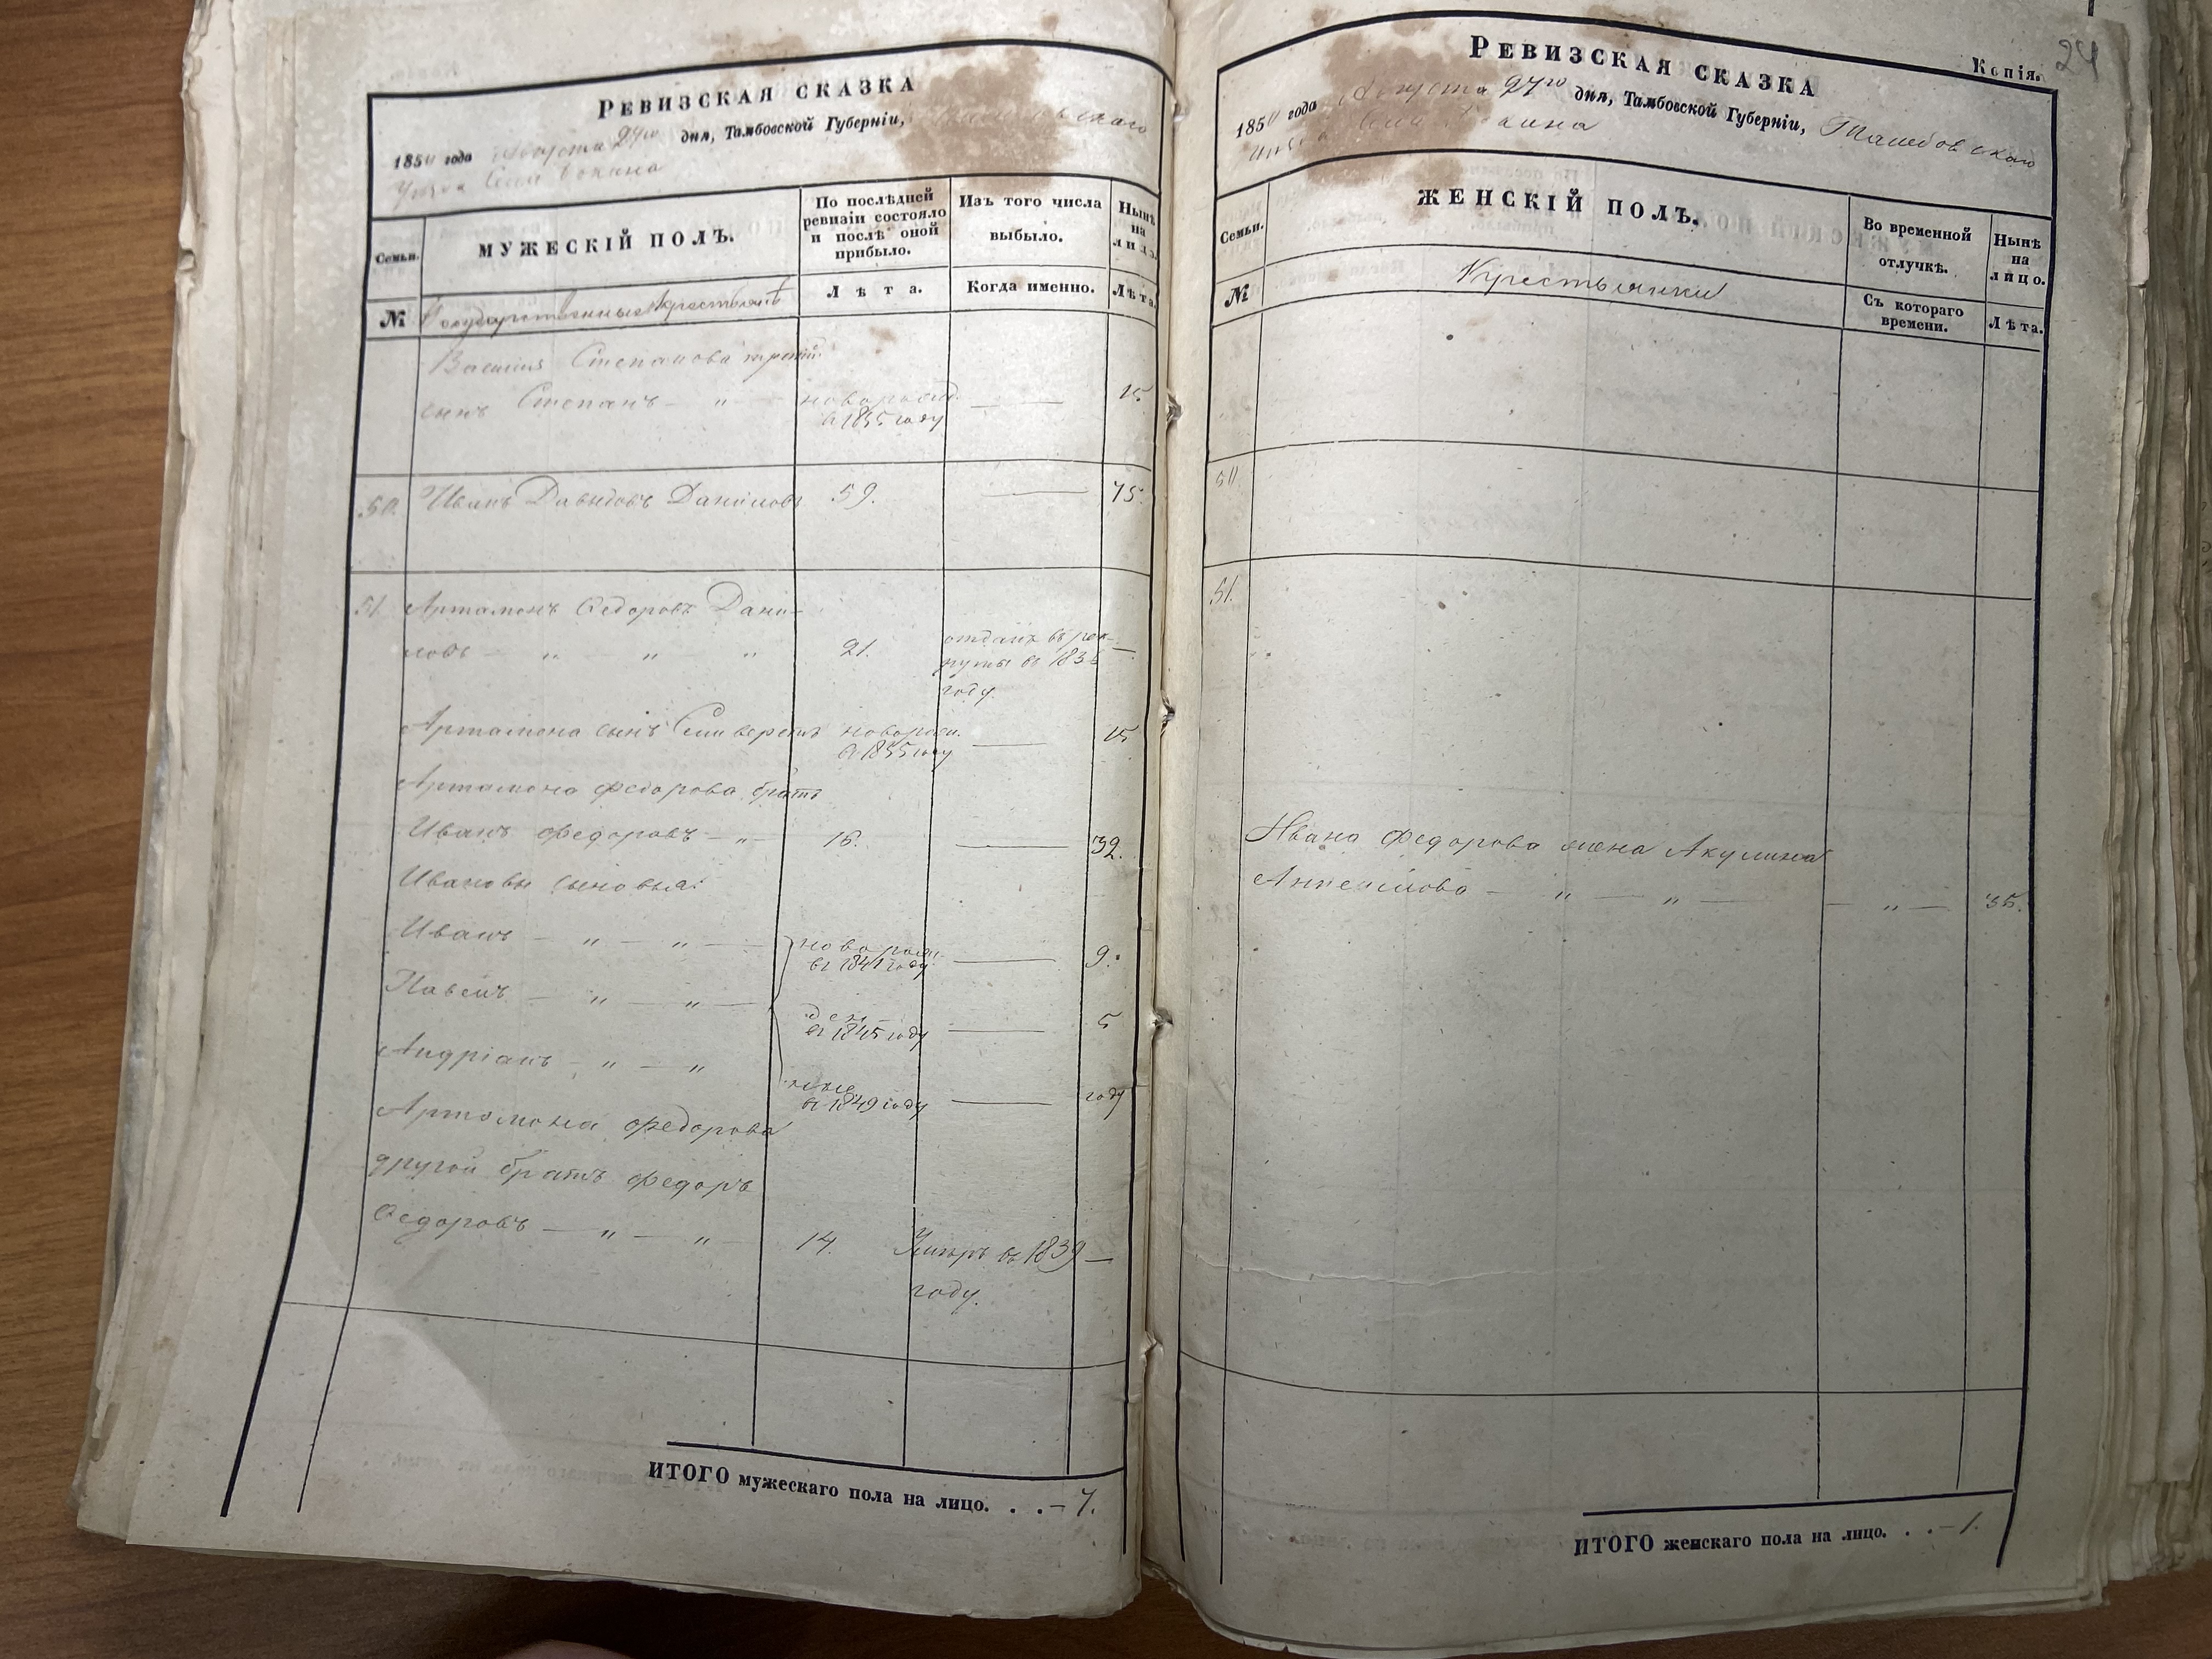 РЕВИЗСКАЯ СКАЗКА
1850 года Августа 27го дня, Тамбовской Губерніи,
Уѣзда Села
Семьи.
МУЖЕСКІЙ ПОЛЪ.
По послѣдней ревизіи состояло и послѣ оной прибыло.
Изъ того числа выбыло.
Нынѣ на лицо.
№
Государственные Крестьяне
Лѣта.
Когда именно.
Лѣта.
Василія Степанова третій
сынъ Степанъ — " — новорожд. — 15
в 1835 году
50. Иванъ Давыдовъ Даниловъ 59. — 75.
51. Артамонъ Федоровъ Дани-
ловъ — " — " — " 21. отданъ въ рек- —
руты въ 1835
году.
Артамона сынъ Селиверстъ новорож. — 15
в 1835 году
Артамона Федорова братъ
Иванъ Федоровъ — " — 16. — 32.
Ивановы сыновья:
Иванъ — " — " — новорож. — 9.
в 1841 году
Павелъ — " — " —
в 1845 году — 5
Андріанъ — " — "
в 1849 году — году
Артамона Федорова
другой братъ Федоръ
Федоровъ — " — " — 14. Умеръ въ 1839 —
году.
ИТОГО мужескаго пола на лицо. . . — 7.
Копія.
24
РЕВИЗСКАЯ СКАЗКА
1850 года Августа 27го дня, Тамбовской Губерніи, Тамбовскаго
Семьи.
ЖЕНСКІЙ ПОЛЪ.
Во временной отлучкѣ.
Нынѣ на лицо.
№
Крестьянки
Съ котораго времени.
Лѣта.
50
51.
Ивана Федорова жена Акулина
— " — " — — " — 35.
ИТОГО женскаго пола на лицо. . . — 1.